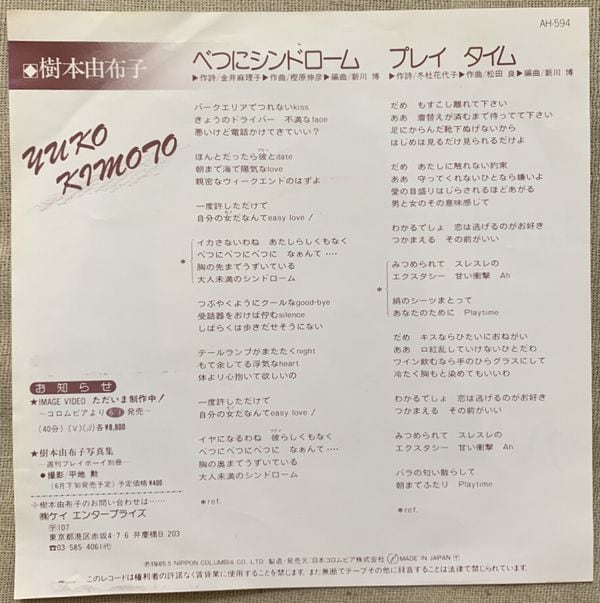 AH-594
◆樹本由布子
YUKO
KIMOTO
べつにシンドローム
▶作詩/金井麻理子▶作曲/樫原伸彦▶編曲/新川 博
パークエリアでつれないkiss
きょうのドライバー 不満なface
悪いけど電話かけてきていい?
ほんとだったら彼とdate
朝まで海で陽気なlove
親密なウィークエンドのはずよ
一度許しただけで
自分の女だなんてeasy love!
イカさないわね あたしらしくもなく
べつにべつにべつに なぁんて‥‥
胸の先までうずいている
大人未満のシンドローム
*
つぶやくようにクールなgood-bye
受話器をおけば佇むsilence
しばらくは歩きだせそうにない
テールランプがまたたくnight
もて余してる浮気なheart
体より心抱いて欲しいの
一度許しただけで
自分の女だなんてeasy love!
イヤになるわね 彼らしくもなく
べつにべつにべつに なぁんて‥‥
胸の奥までうずいている
大人未満のシンドローム
*ref.
プレイ タイム
▶作詩/冬杜花代子▶作曲/松田 良▶編曲/新川 博
だめ もすこし離れて下さい
ああ 着替えが済むまで待ってて下さい
足にからんだ靴下ぬげないから
はじめは見るだけ見られるだけよ
だめ あたしに触れない約束
ああ 守ってくれないひとなら嫌いよ
愛の目盛りはじらされるほどあがる
男と女のその意味感じて
わかるでしょ 恋は逃げるのがお好き
つかまえる その前がいい
みつめられて スレスレの
エクスタシー 甘い衝撃 Ah
*
絹のシーツまとって
あなたのために Playtime
だめ キスならひたいにおねがい
ああ 口紅乱していけないひとだわ
ワイン飲むなら手のひらグラスにして
冷たく胸もと染めてもいいわ
わかるでしょ 恋は逃げるのがお好き
つかまえる その前がいい
みつめられて スレスレの
エクスタシー 甘い衝撃 Ah
バラの匂い散らして
朝までふたり Playtime
*ref.
お知らせ
★IMAGE VIDEO ただいま制作中!
〜コロムビアより発売〜
(40分) (V)(β)各¥8,800
★樹本由布子写真集
―週刊プレイボーイ別冊―
●撮影/平地 勲
(6月下旬発売予定)予定価格¥400
樹本由布子のお問い合わせは……
㈱ケイ エンタープライズ
〒107
東京都港区赤坂4-7-6 弁慶橋B 203
☎03-585-4061㈹
Ⓟ1985.5 NIPPON COLUMBIA CO., LTD. 製造・発売元:日本コロムビア株式会社 MADE IN JAPAN
このレコードは権利者の許諾なく賃貸業に使用することを禁じます。また無断でテープその他に録音することは法律で禁じられています。